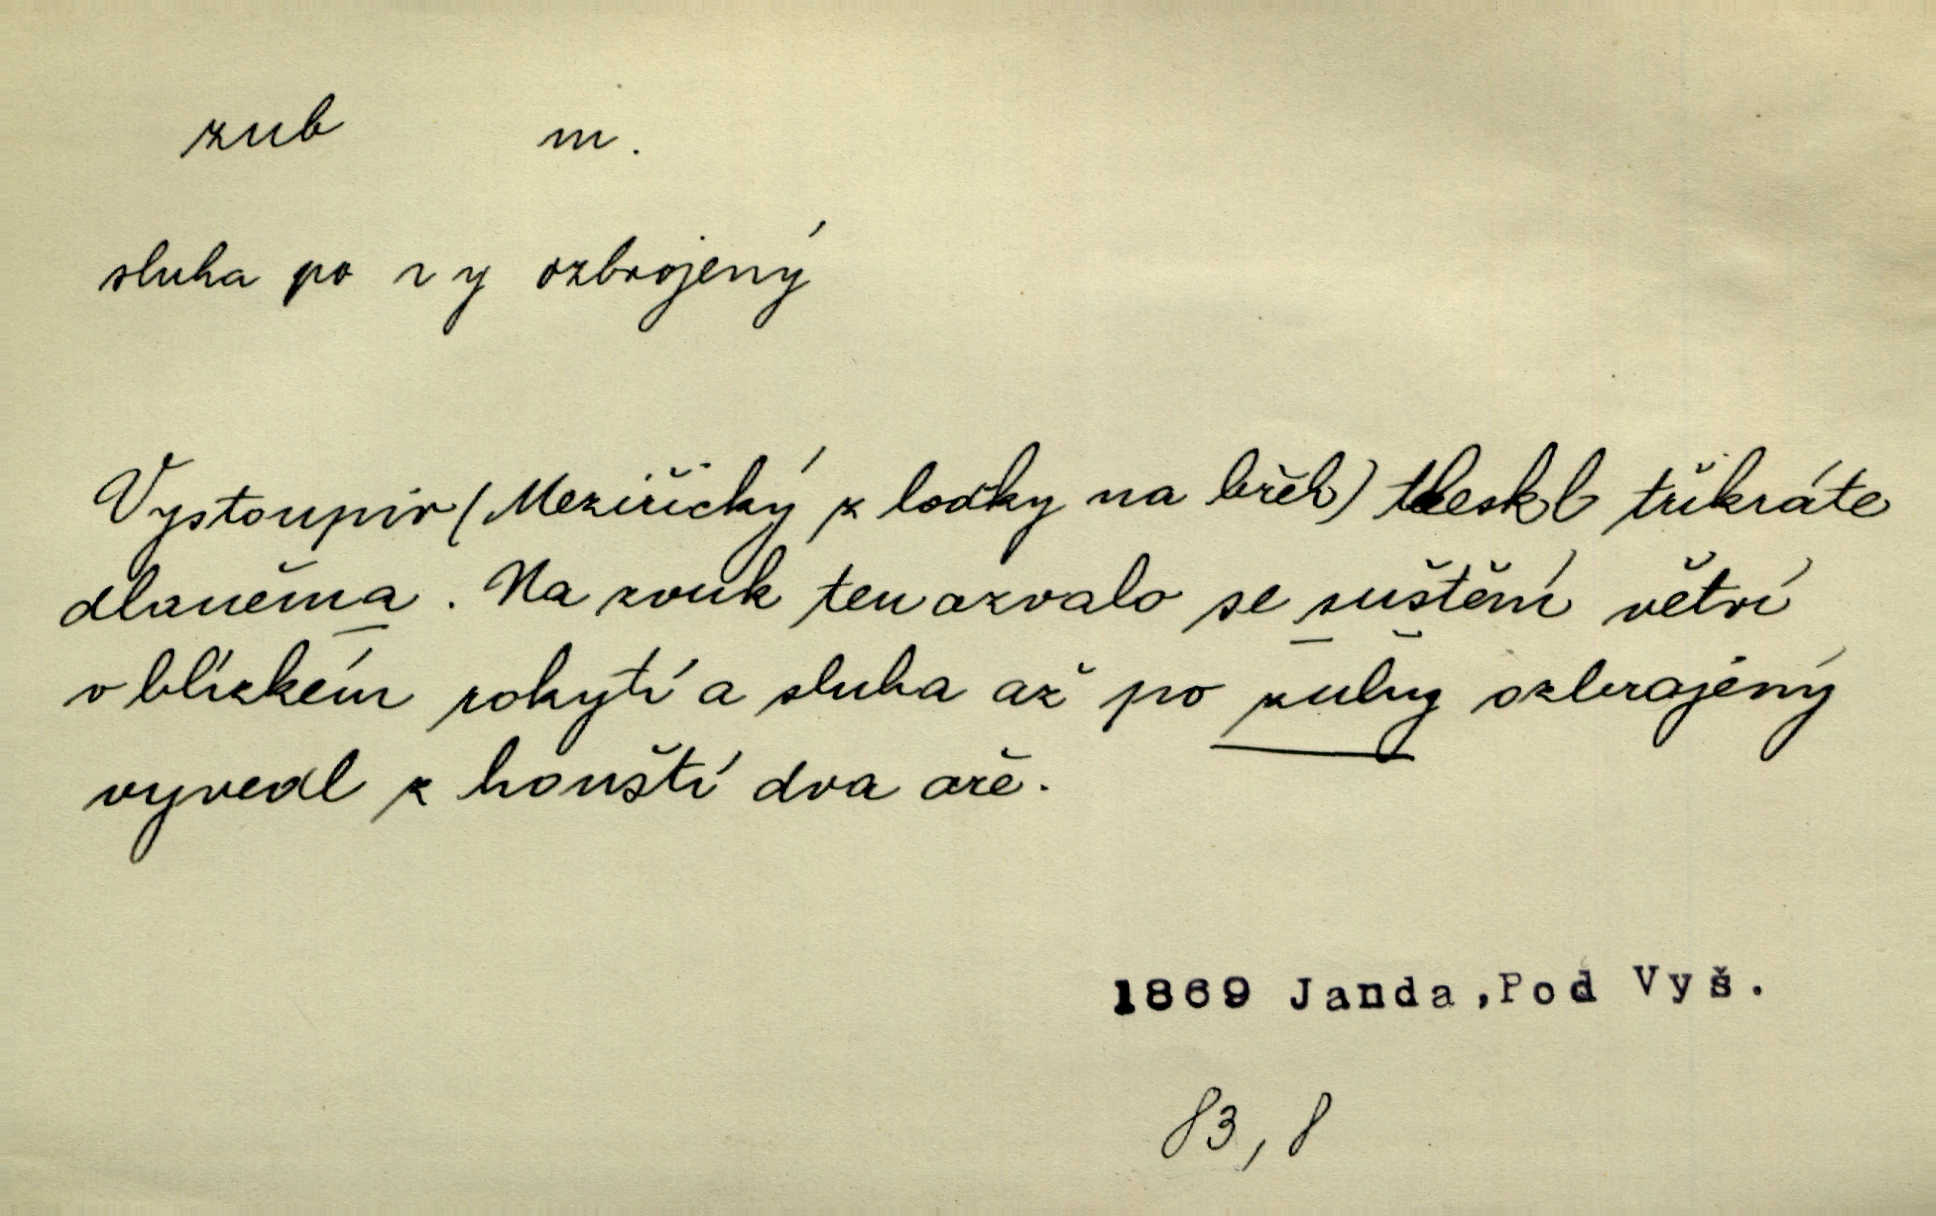 zub m.
sluha po ~ y ozbrojený
Vystoupiv (Meziříčký z loďky na břeh) tleskl třikráte
dlaněma. Na zvuk ten ozvalo se suštění větví
v blízkém rokytí a sluha až po zuby ozbrojený
vyvedl z houští dva oře.
1869 Janda, Pod Vyš.
83, 8